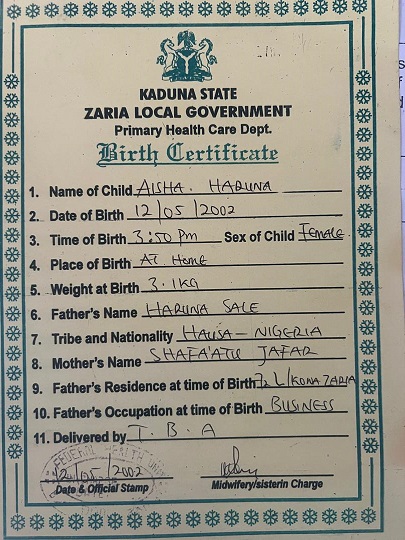 KADUNA STATE
ZARIA LOCAL GOVERNMENT
Primary Health Care Dept.
Birth Certificate
1. Name of Child AISHA. HARUNA
2. Date of Birth 12/05/2002
3. Time of Birth 3:50 Pm Sex of Child FEMALE
4. Place of Birth AT HOME
5. Weight at Birth 3.1KG
6. Father's Name HARUNA SALE
7. Tribe and Nationality HAUSA - NIGERIA
8. Mother's Name SHAFA'ATU JAFAR
9. Father's Residence at time of Birth L/KONA ZARIA
10. Father's Occupation at time of Birth BUSINESS
11. Delivered by T. B. A
FEDERAL HEALTH
/05/2002
Date & Official Stamp Midwifery/sisterin Charge